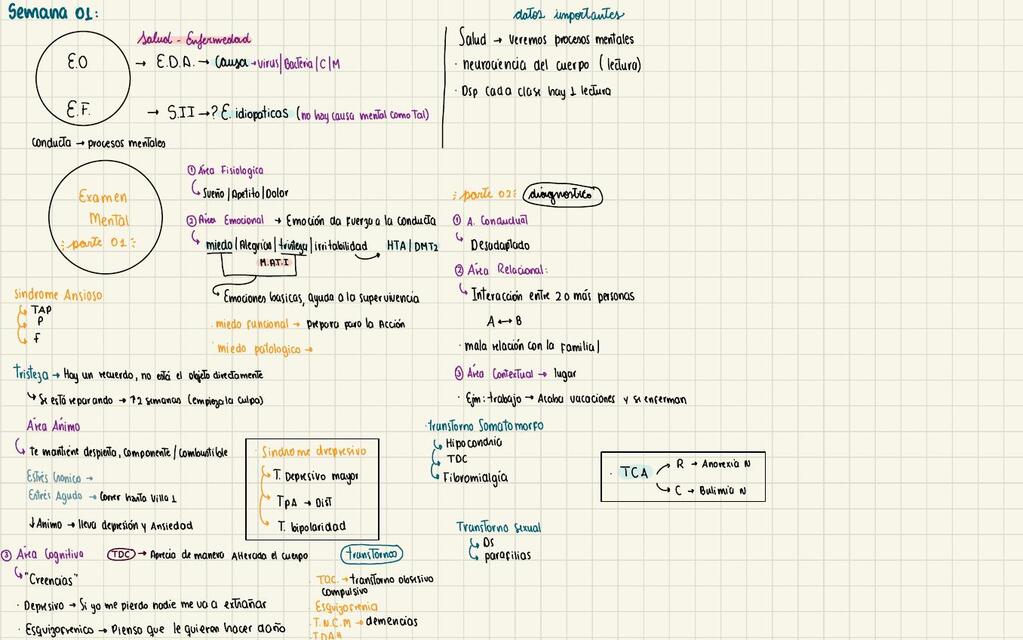 Semana 01:
Salud - Enfermedad
E.O → E.D.A. → Causa → virus | Bacteria | C | M
E.F. → S.II → ? E. idiopaticas (no hay causa mental como Tal)
Conducta → procesos mentales
datos importantes
Salud → Veremos procesos mentales
· neurociencia del cuerpo (lectura)
· Dsp cada clase hay 1 lectura
Examen
Mental
parte 01
① Área Fisiologica
Sueño | Apetito | Dolor
② Área Emocional → Emoción da fuerza a la conducta
miedo | Alegrias | tristeza | irritabilidad HTA | DMT2
M.A.T.I
Emociones basicas, ayuda a la supervivencia
· miedo funcional → prepara para la Acción
· miedo patologico →
Sindrome Ansioso
TAP
P
F
Tristeza → Hay un recuerdo, no está el objeto directamente
Se está reparando → 72 semanas (empieza la culpa)
Área Ánimo
te mantiene despierto, componente / combustible
Estrés Cronico →
Estrés Agudo → Correr hasta Villa 1
↓ Animo → lleva depresión y Ansiedad
· Sindrome drepresivo
T. Depresivo mayor
TPA → Dist
T. bipolaridad
③ Área Cognitiva TDC → Aprecia de manera Alterada el cuerpo
"Creencias"
· Depresivo → Si yo me pierdo nadie me va a extrañar
· Esquizofrenico → Pienso que le quieren hacer daño
transtornos
· TOC → transtorno obsesivo
compulsivo
· Esquizofrenia
· T.N.C.M → demencias
· TDAH
parte 02: diagnostico
① A. Conductual
Desadaptado
② Área Relacional:
Interacción entre 2 o más personas
A ↔ B
· mala relación con la familia |
③ Área Contextual → lugar
· Ejm: trabajo → Acaba vacaciones y se enferman
· transtorno Somatomorfo
Hipocondria
TDC
Fibromialgía
· TCA
R → Anorexia N
C → Bulimia N
Transtorno sexual
DS
parafilias